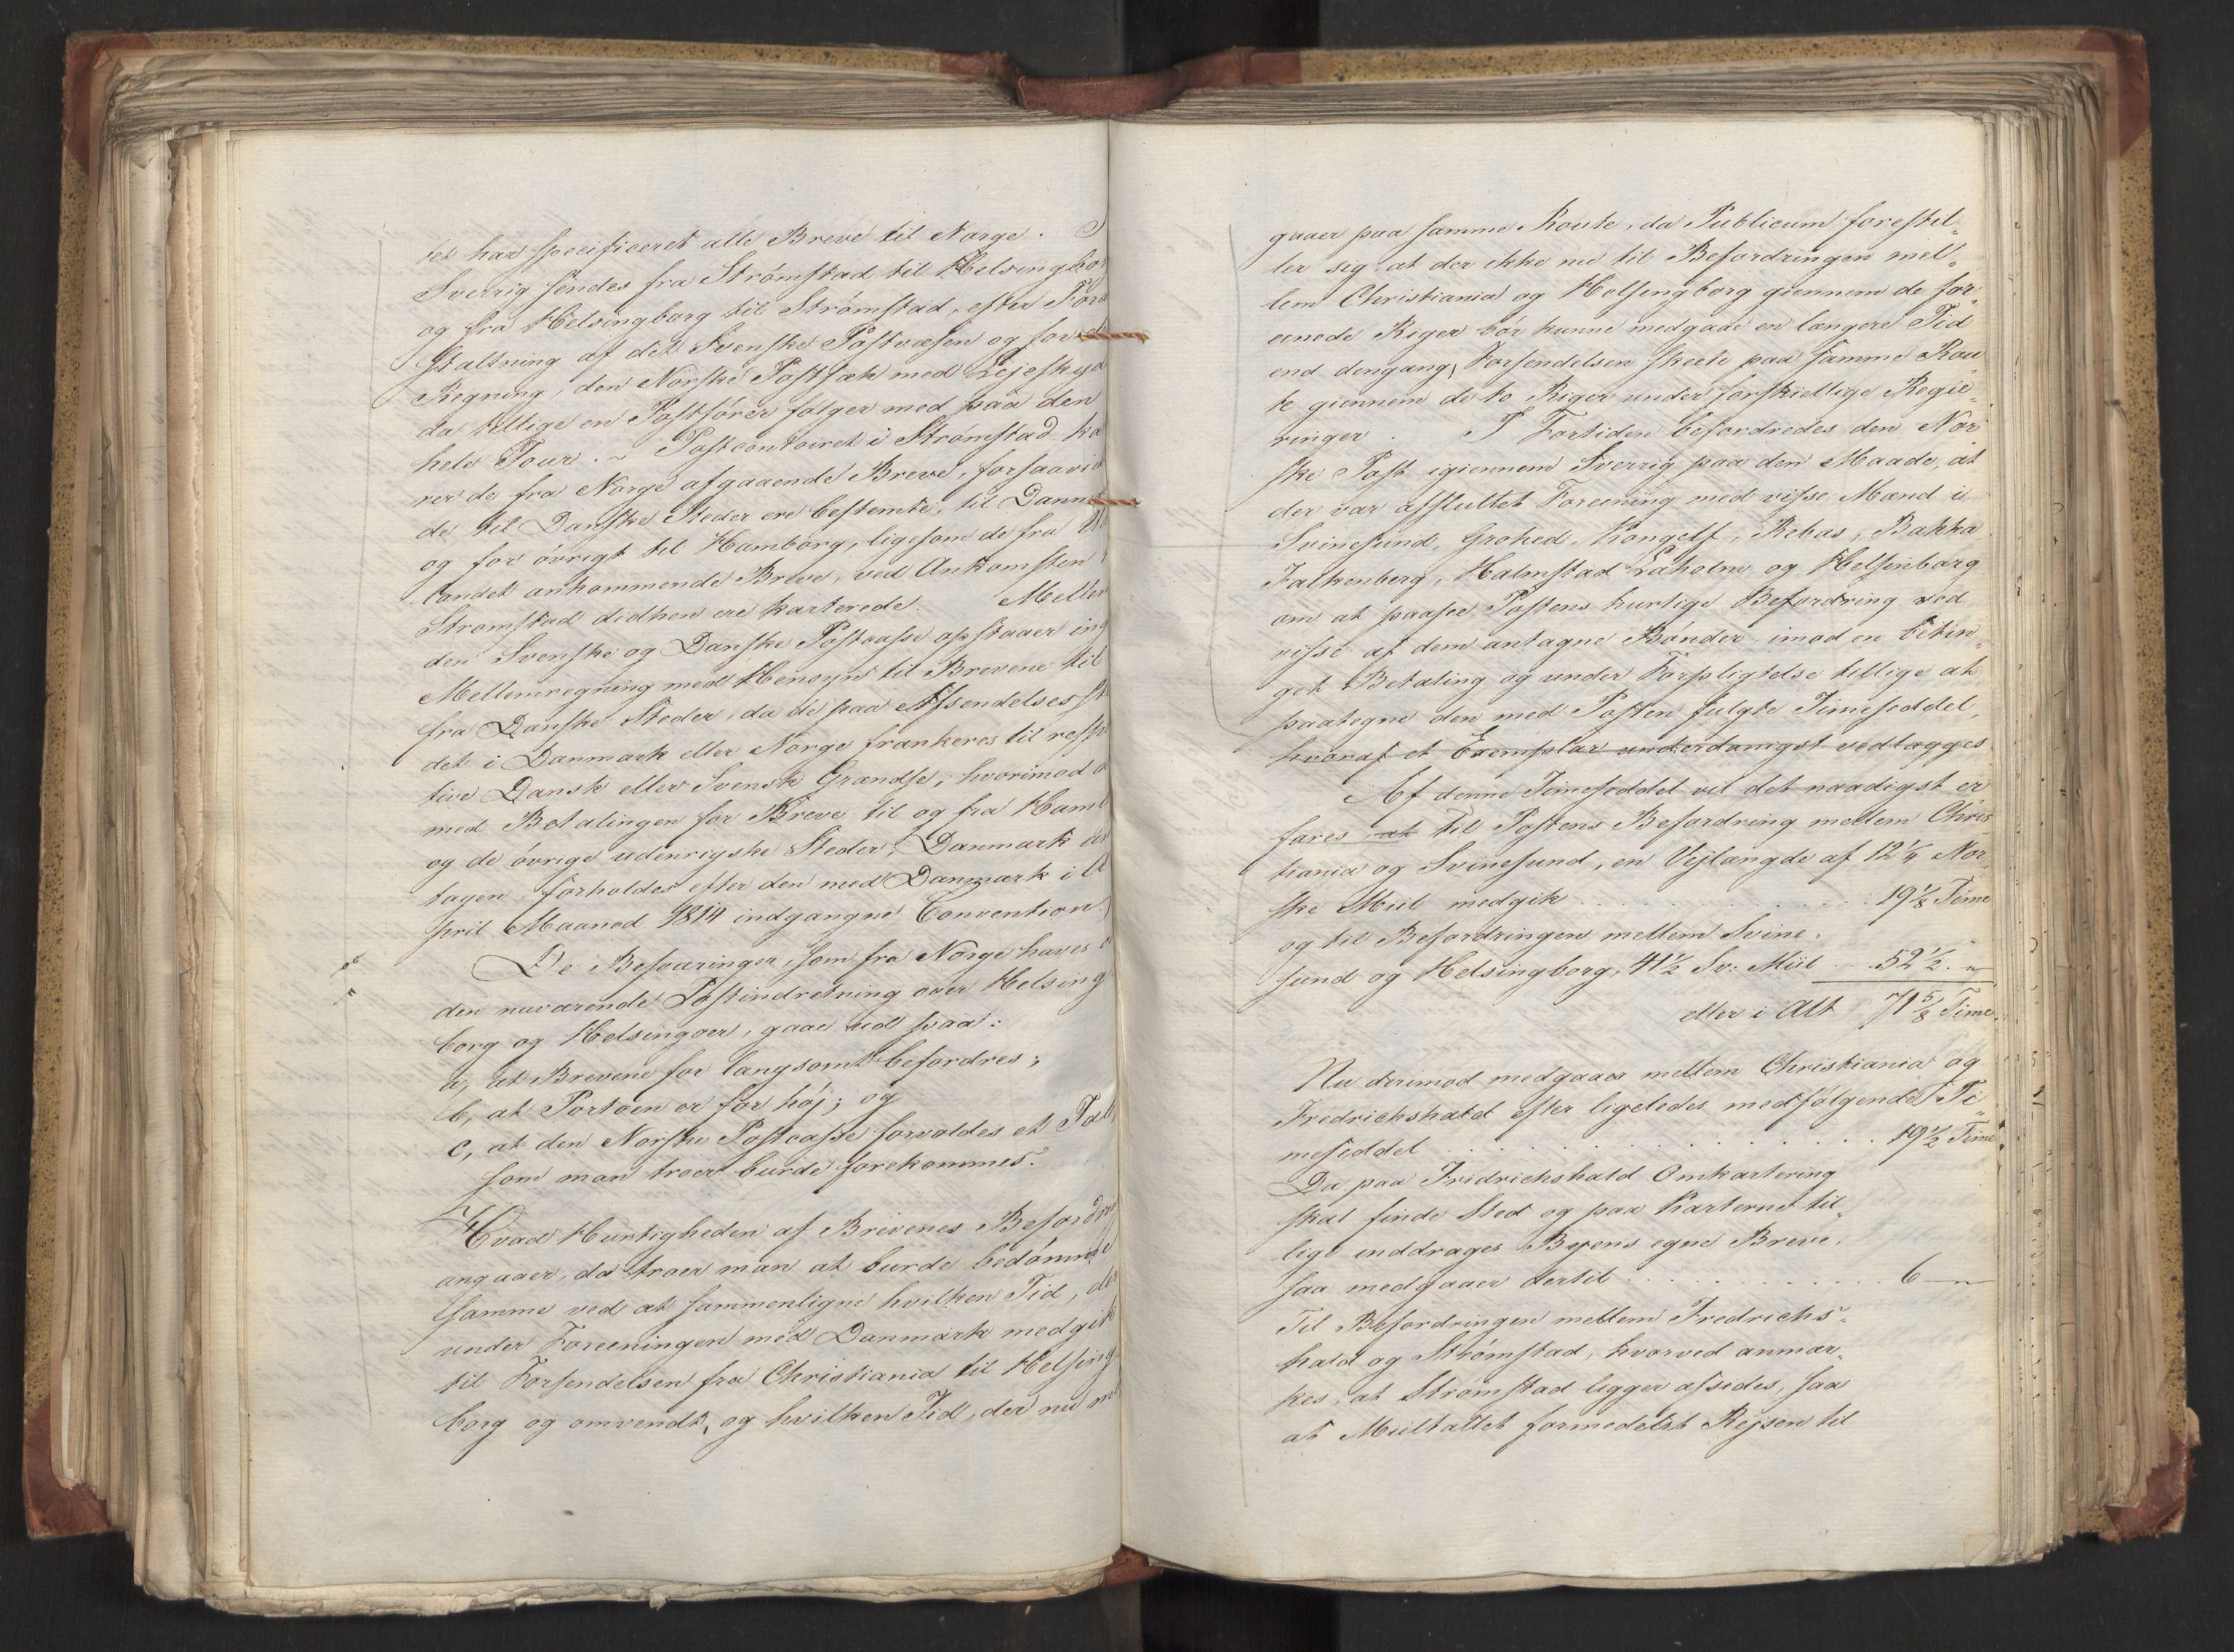 tet har specificeret alle Breve til Norge. I
Sverrig sendes fra Strømstad til Helsingbor
og fra Helsingborg til Strømstad, efter For
staltning af det Svenske Postvæsen og for
Regning, den Norske Postsæk med Lejeskyd
da tillige en Postfører følger med paa den
hele Tour. ~ Postcontoiret i Strømstad ka
rer de fra Norge afgaaende Breve, forsaavid
de til Danske Steder ere bestemte, til Danm
og for øvrigt til Hamborg, ligesom de fra
landet ankommende Breve, ved Ankomsten
Strømstad didhen ere karterede. Mellem
den Svenske og Danske Postcasse opstaaer ing
Mellemregning med Hensyn til Brevene til
fra Danske Steder, da de paa Afsendelsesst
det i Danmark eller Norge frankeres til resp
tive Dansk eller Svensk Grændse; hvorimod
med Betalingen for Breve til og fra Hamb
og de øvrige udenrigske Steder, Danmark
tagen, forholdes efter den med Danmark i A
pril Maaned 1814 indgangne Convention.
De Besværinger, som fra Norge haves
den nuværende Postindretning over Helsing
borg og Helsingøer, gaae ud paa:
a, at Brevene for langsomt befordres;
b, at Portoen er for høj; og
c, at den Norske Postcasse forvoldes et Tab,
som man troer burde forekommes.
Hvad Hurtigheden af Brevenes Befordri
angaaer, da troer man at burde bedømme
samme ved at sammenligne hvilken Tid, der
under Foreeningen med Danmark medgik
til Forsendelsen fra Christiania til Helsing
borg og omvendt, og hvilken Tid, der nu m
gaaer paa samme Route, da Publicum forestil„
ler sig at der ikke nu til Befordringen mel„
lem Christiania og Helsingborg giennem de for
enede Riger bør kunne medgaae en længere Tid
end dengang, Forsendelsen skeete paa samme Rou
te giennem de to Riger under forskiellige Regie„
ringer. I Fortiden befordredes den Nor
ske Post igiennem Sverrig paa den Maade, at
der var afsluttet Foreening med visse Mænd i
Svinesund, Grohed, Kongelf, Kebas, Bakka
Falkenberg, Halmstad Laholm og Helsinborg
om at paasee Postens hurtige Befordring ved
visse af dem antagne Bønder imod en betin„
get Betaling og under Forpligtelse tillige at
paategne den med Posten fulgte Timeseddel,
hvoraf et Exemplar underdanigst vedlægges
Af denne Timeseddel vil det naadigst er
fares at til Postens Befordring mellem Chris
tiania og Svinesund, en Vejlængde af 12¼ Nor
ske Miil medgik . . . . . . 19⅛ Time
og til Befordringen mellem Svine„
sund og Helsingborg, 41½ Sv: Miil 52½ „
eller i Alt 71⅝ Time.
Nu derimod medgaaer mellem Christiania og
Fredrichshald efter ligeledes medfølgende Ti„
meseddel . . . . . . 19½ Time
Da paa Fridrichshald Omkartering
skal finde Sted og paa Karterne til„
lige inddrages Byens egne Breve,
saa medgaaer dertil . . . . . . 6 „
Til Befordringen mellem Fredrichs„
hald og Strømstad, hvorved anmær„
kes, at Strømstad ligger afsides, saa
at Miiltallet formedelst Rejsen til